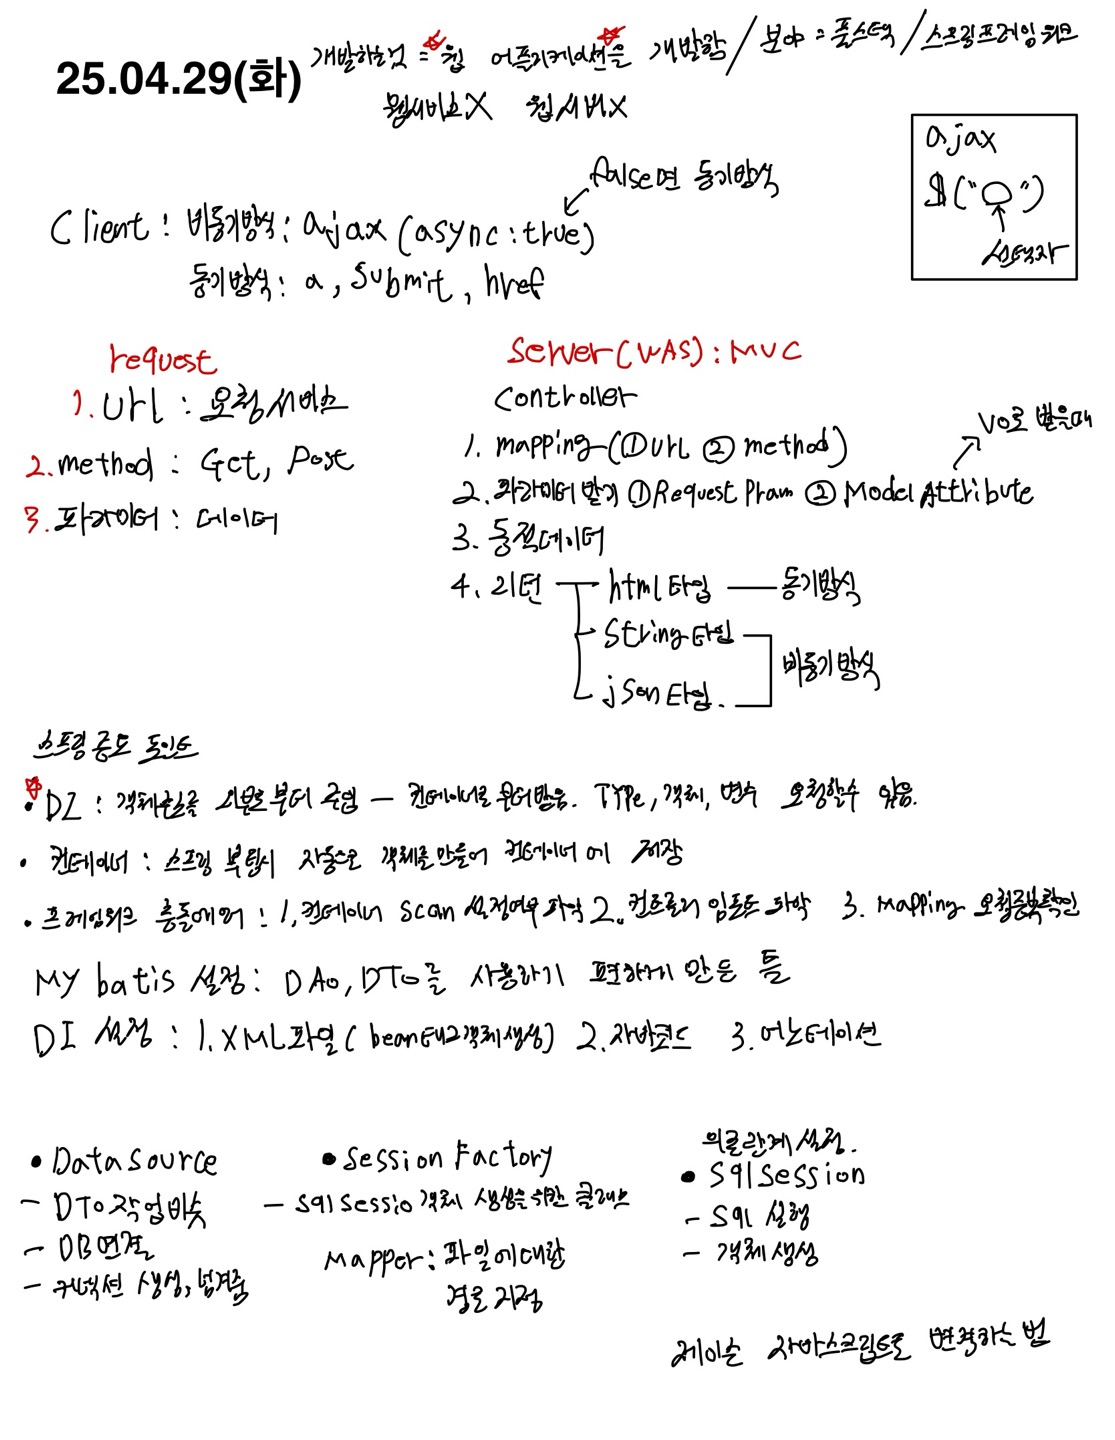 25.04.29(화)
개발하는것 = 웹 어플리케이션을 개발함 / 분야 = 풀스택 / 스프링프레임워크
웹서비스X 웹서버X
ajax
$("○")
선택자
false면 동기방식
Client : 비동기방식 : ajax (async : true)
동기방식 : a, Submit, href
request
1. Url : 요청서비스
2. method : Get, Post
3. 파라미터 : 데이터
Server(WAS) : MVC
Controller
1. mapping (① Url ② method)
VO로 받을때
2. 파라미터 받기 ① Request Pram ② Model Attribute
3. 동적데이터
4. 리턴 html타입 동기방식
String타입
json타입. 비동기방식
스프링 중요 포인트
• DI : 객체 외부로부터 주입 – 컨테이너로 받음. TYPe, 객체, 변수 요청할수 있음.
• 컨테이너 : 스프링 부팅시 자동으로 객체를 만들어 컨테이너에 저장
• 프레임워크 충돌에러 : 1. 컨테이너 Scan 설정여부 파악 2. 컨트롤러 임포트 파악 3. Mapping 요청중복확인
My batis 설정 : DAo, DTo를 사용하기 편하게 만든 틀
DI 설정 : 1. XML파일 ( bean태그 객체생성) 2. 자바코드 3. 어노테이션
• Data Source
– DTo 작업비슷
– DB연결
– 커넥션 생성, 넘겨줌
• Session Factory
– Sql Sessio 객체 생성을 위한 클래스
Mapper : 파일에 대한
경로 지정
의존관계 설정.
• Sql Session
– Sql 실행
– 객체 생성
제이슨 자바스크립트로 변경하는 법